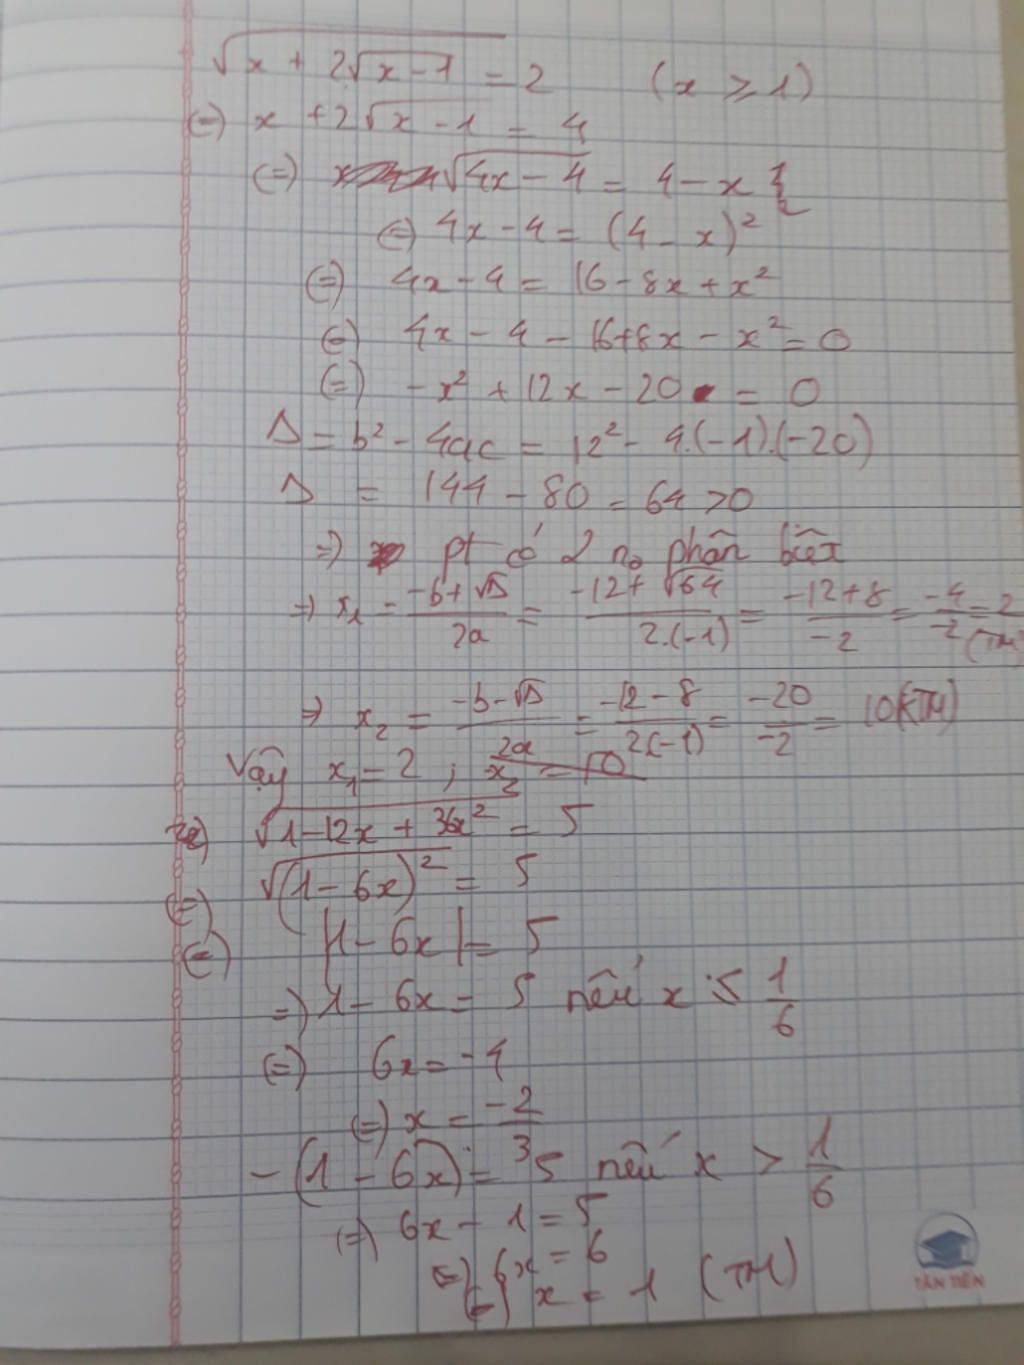 √(x + 2√(x-1)) = 2 (x ≥ 1)
(=) x + 2√(x-1) = 4
(=) √(4x-4) = 4-x
(=) 4x-4 = (4-x)²
(=) 4x-4 = 16-8x+x²
(=) 4x-4-16+8x-x² = 0
(=) -x²+12x-20 = 0
Δ = b²-4ac = 12²-4.(-1).(-20)
Δ = 144-80 = 64 > 0
=) pt có 2 no phân biệt
=) x₁ = (-b+√Δ)/2a = (-12+√64)/2.(-1) = (-12+8)/-2 = -4/-2 = 2 (TM)
=) x₂ = (-b-√Δ)/2a = (-12-8)/2(-1) = -20/-2 = 10 (KTM)
Vậy x₁ = 2 ; x₂ = 10
√(1-12x+36x²) = 5
(=) √((1-6x)²) = 5
(=) |1-6x| = 5
=) 1-6x = 5 nếu x ≤ 1/6
(=) 6x = -4
(=) x = -2/3
-(1-6x) = 5 nếu x > 1/6
(=) 6x-1 = 5
(=) 6x = 6
x = 1 (TM)
TÂN TIẾN